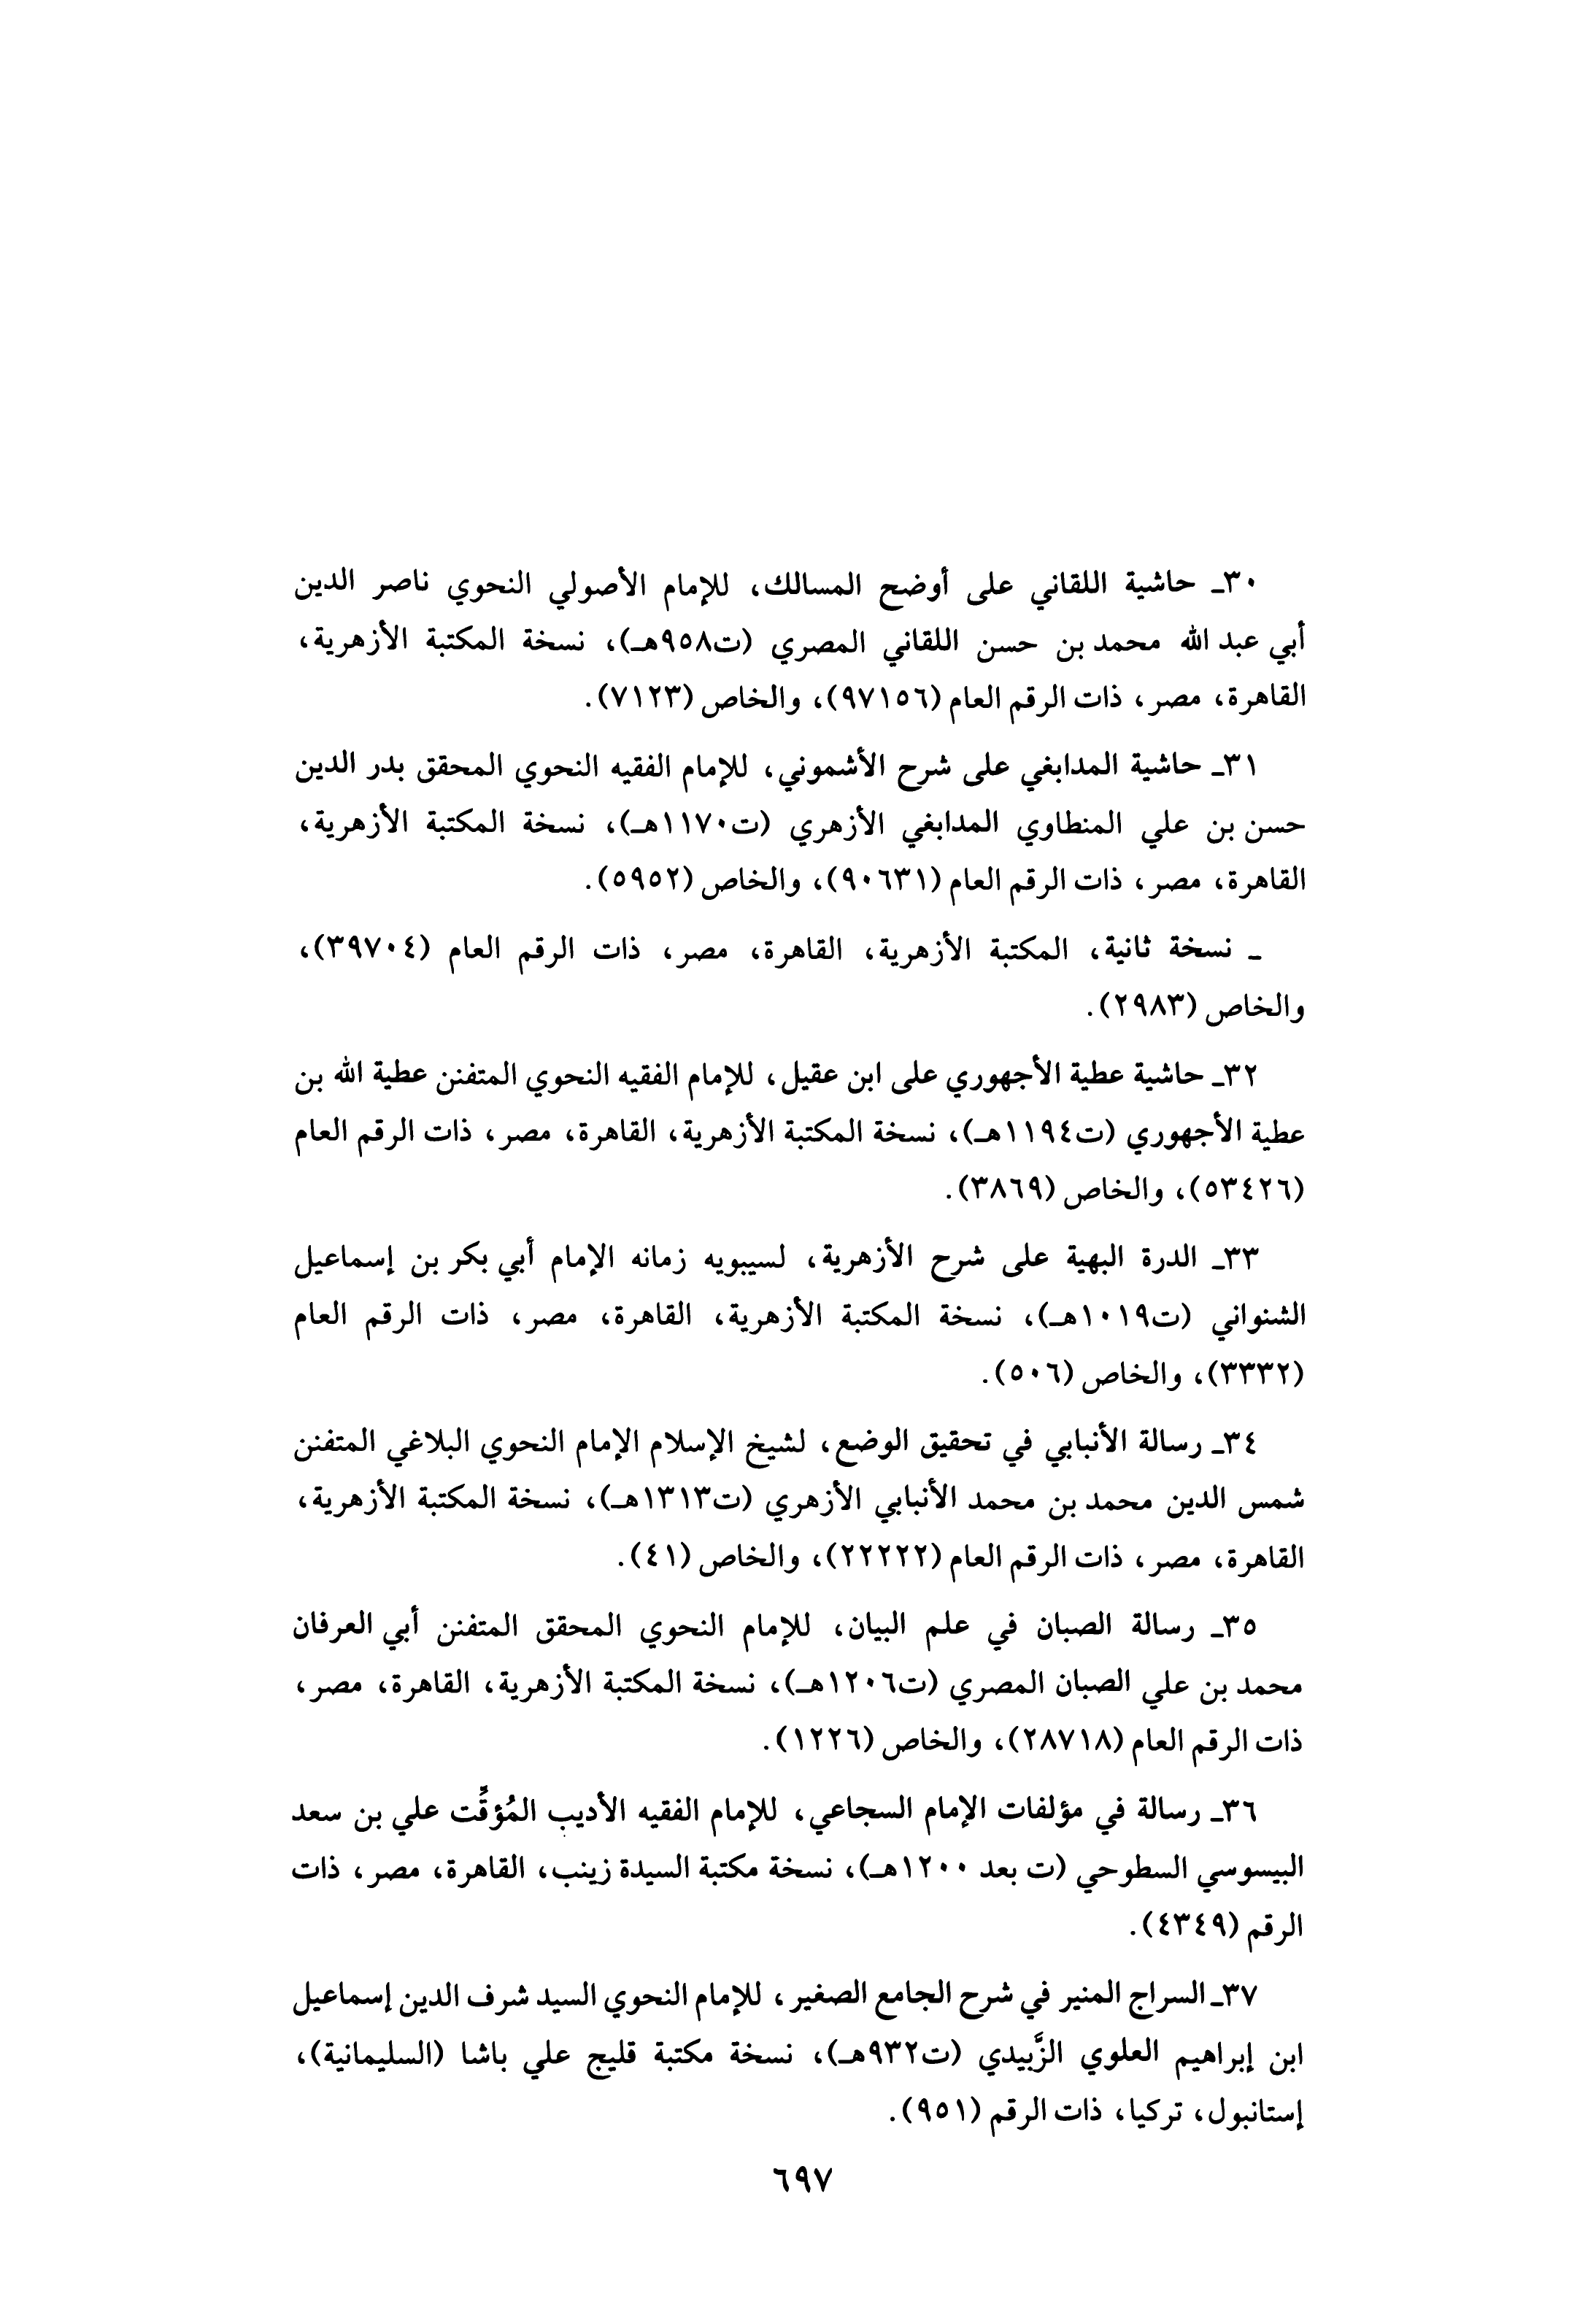 ٣٠ـ حاشية اللقاني على أوضح المسالك، للإمام الأصولي النحوي ناصر الدين
أبي عبد الله محمد بن حسن اللقاني المصري (ت٩٥٨هـ)، نسخة المكتبة الأزهرية،
القاهرة، مصر، ذات الرقم العام (٩٧١٥٦)، والخاص (٧١٢٣).
٣١ـ حاشية المدابغي على شرح الأشموني، للإمام الفقيه النحوي المحقق بدر الدين
حسن بن علي المنطاوي المدابغي الأزهري (ت١١٧٠هـ)، نسخة المكتبة الأزهرية،
القاهرة، مصر، ذات الرقم العام (٩٠٦٣١)، والخاص (٥٩٥٢).
ـ نسخة ثانية، المكتبة الأزهرية، القاهرة، مصر، ذات الرقم العام (٣٩٧٠٤)،
والخاص (٢٩٨٣).
٣٢ـ حاشية عطية الأجهوري على ابن عقيل، للإمام الفقيه النحوي المتفنن عطية الله بن
عطية الأجهوري (ت١١٩٤هـ)، نسخة المكتبة الأزهرية، القاهرة، مصر، ذات الرقم العام
(٥٣٤٢٦)، والخاص (٣٨٦٩).
٣٣ـ الدرة البهية على شرح الأزهرية، لسيبويه زمانه الإمام أبي بكر بن إسماعيل
الشنواني (ت١٠١٩هـ)، نسخة المكتبة الأزهرية، القاهرة، مصر، ذات الرقم العام
(٣٣٣٢)، والخاص (٥٠٦).
٣٤ـ رسالة الأنبابي في تحقيق الوضع، لشيخ الإسلام الإمام النحوي البلاغي المتفنن
شمس الدين محمد بن محمد الأنبابي الأزهري (ت١٣١٣هـ)، نسخة المكتبة الأزهرية،
القاهرة، مصر، ذات الرقم العام (٢٢٢٢٢)، والخاص (٤١).
٣٥ـ رسالة الصبان في علم البيان، للإمام النحوي المحقق المتفنن أبي العرفان
محمد بن علي الصبان المصري (ت١٢٠٦هـ)، نسخة المكتبة الأزهرية، القاهرة، مصر،
ذات الرقم العام (٢٨٧١٨)، والخاص (١٢٢٦).
٣٦ـ رسالة في مؤلفات الإمام السجاعي، للإمام الفقيه الأديب المُؤقِّت علي بن سعد
البيسوسي السطوحي (ت بعد ١٢٠٠هـ)، نسخة مكتبة السيدة زينب، القاهرة، مصر، ذات
الرقم (٤٣٤٩).
٣٧ـ السراج المنير في شرح الجامع الصغير، للإمام النحوي السيد شرف الدين إسماعيل
ابن إبراهيم العلوي الزَّبيدي (ت٩٣٢هـ)، نسخة مكتبة قليج علي باشا (السليمانية)،
إستانبول، تركيا، ذات الرقم (٩٥١).
٦٩٧